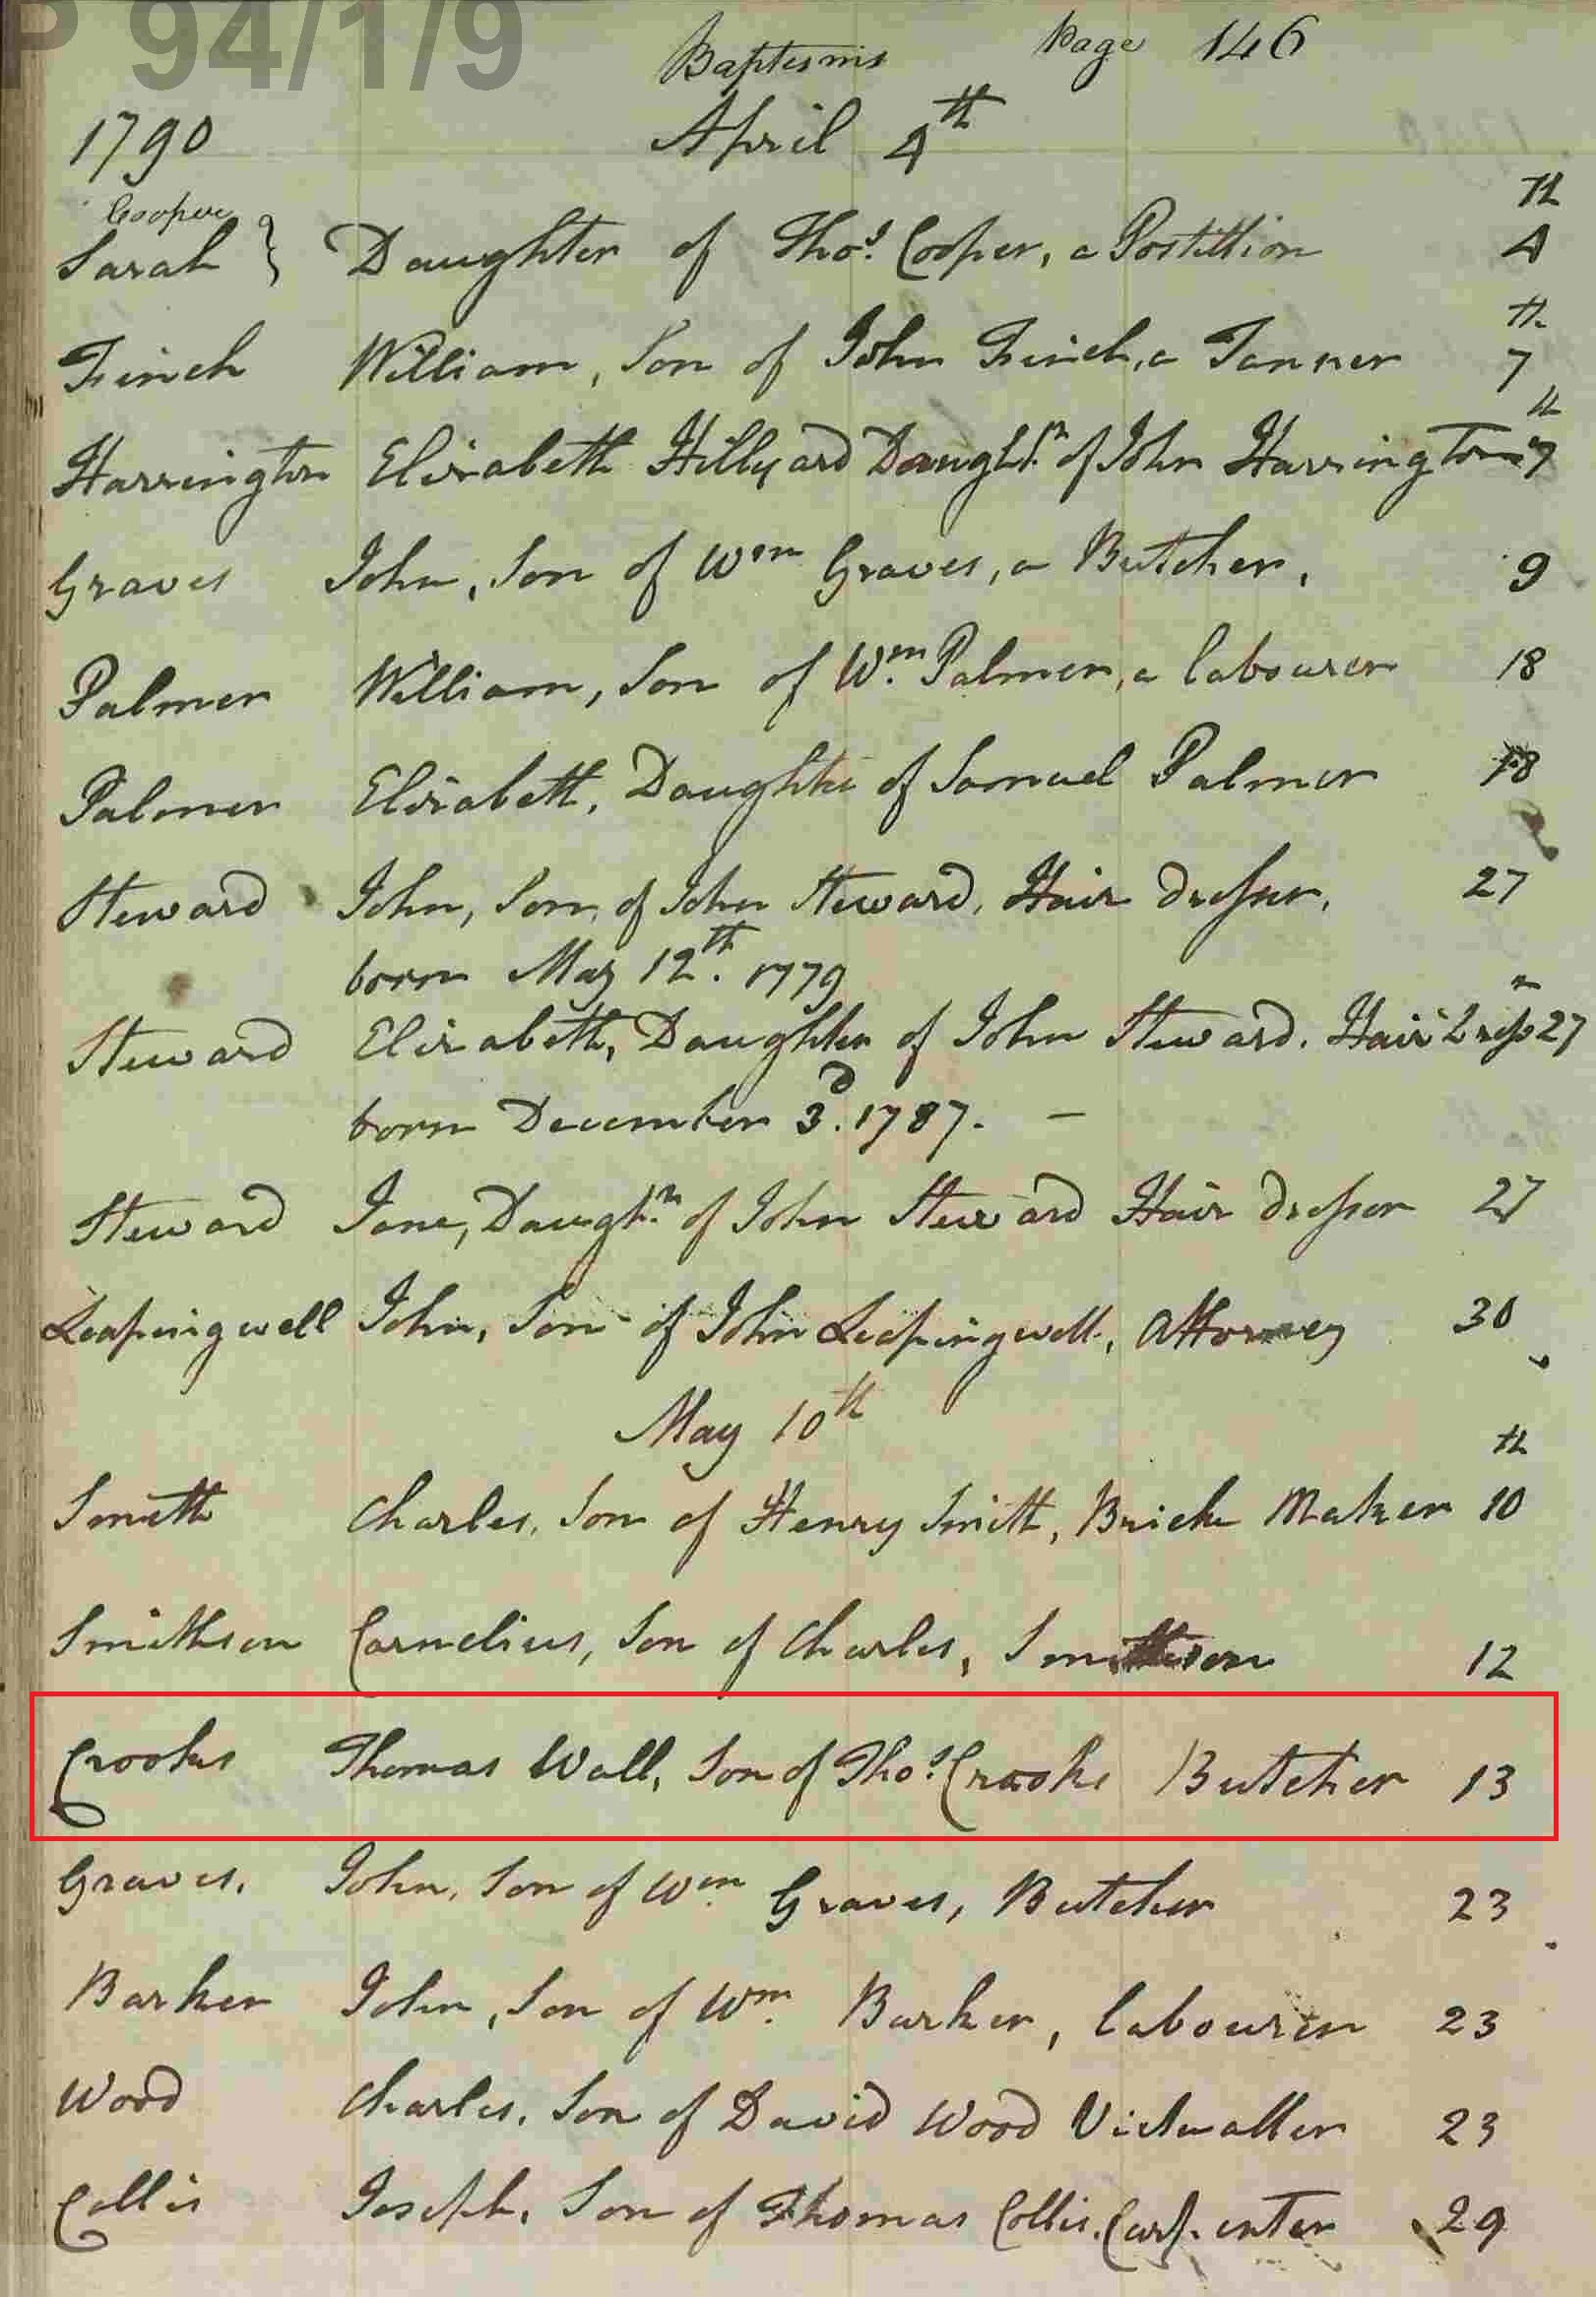 P 94/1/9
Baptisms Page 146
1790 April 4th
Cooper
Sarah } Daughter of Thos. Cooper, a Postillion 4th
Finch William, Son of John Finch, a Tanner 7th
Harrington Elizabeth Hillyard Daught.r of John Harrington 7th
Graves John, Son of Wm Graves, a Butcher, 9
Palmer William, Son of Wm. Palmer, a labourer 18
Palmer Elizabeth, Daughter of Samuel Palmer 18
Steward John, Son of John Steward, Hair dresser, 27
born May 12th. 1779
Steward Elizabeth, Daughter of John Steward. Hair Dressr 27
born December 3d. 1787. —
Steward Jane, Daught.r of John Steward Hair dresser 27
Leapingwell John, Son of John Leapingwell, Attorney 30
May 10th
Smith Charles, Son of Henry Smith, Brick Maker 10th
Smithson Cornelius, Son of Charles, Smithson 12
Crooks Thomas Wall, Son of Thos. Crooks Butcher 13
Graves, John, Son of Wm. Graves, Butcher 23
Barker John, Son of Wm. Barker, labourer 23
Wood Charles, Son of David Wood Victualler 23
Collis Joseph, Son of Thomas Collis, Carpenter 29